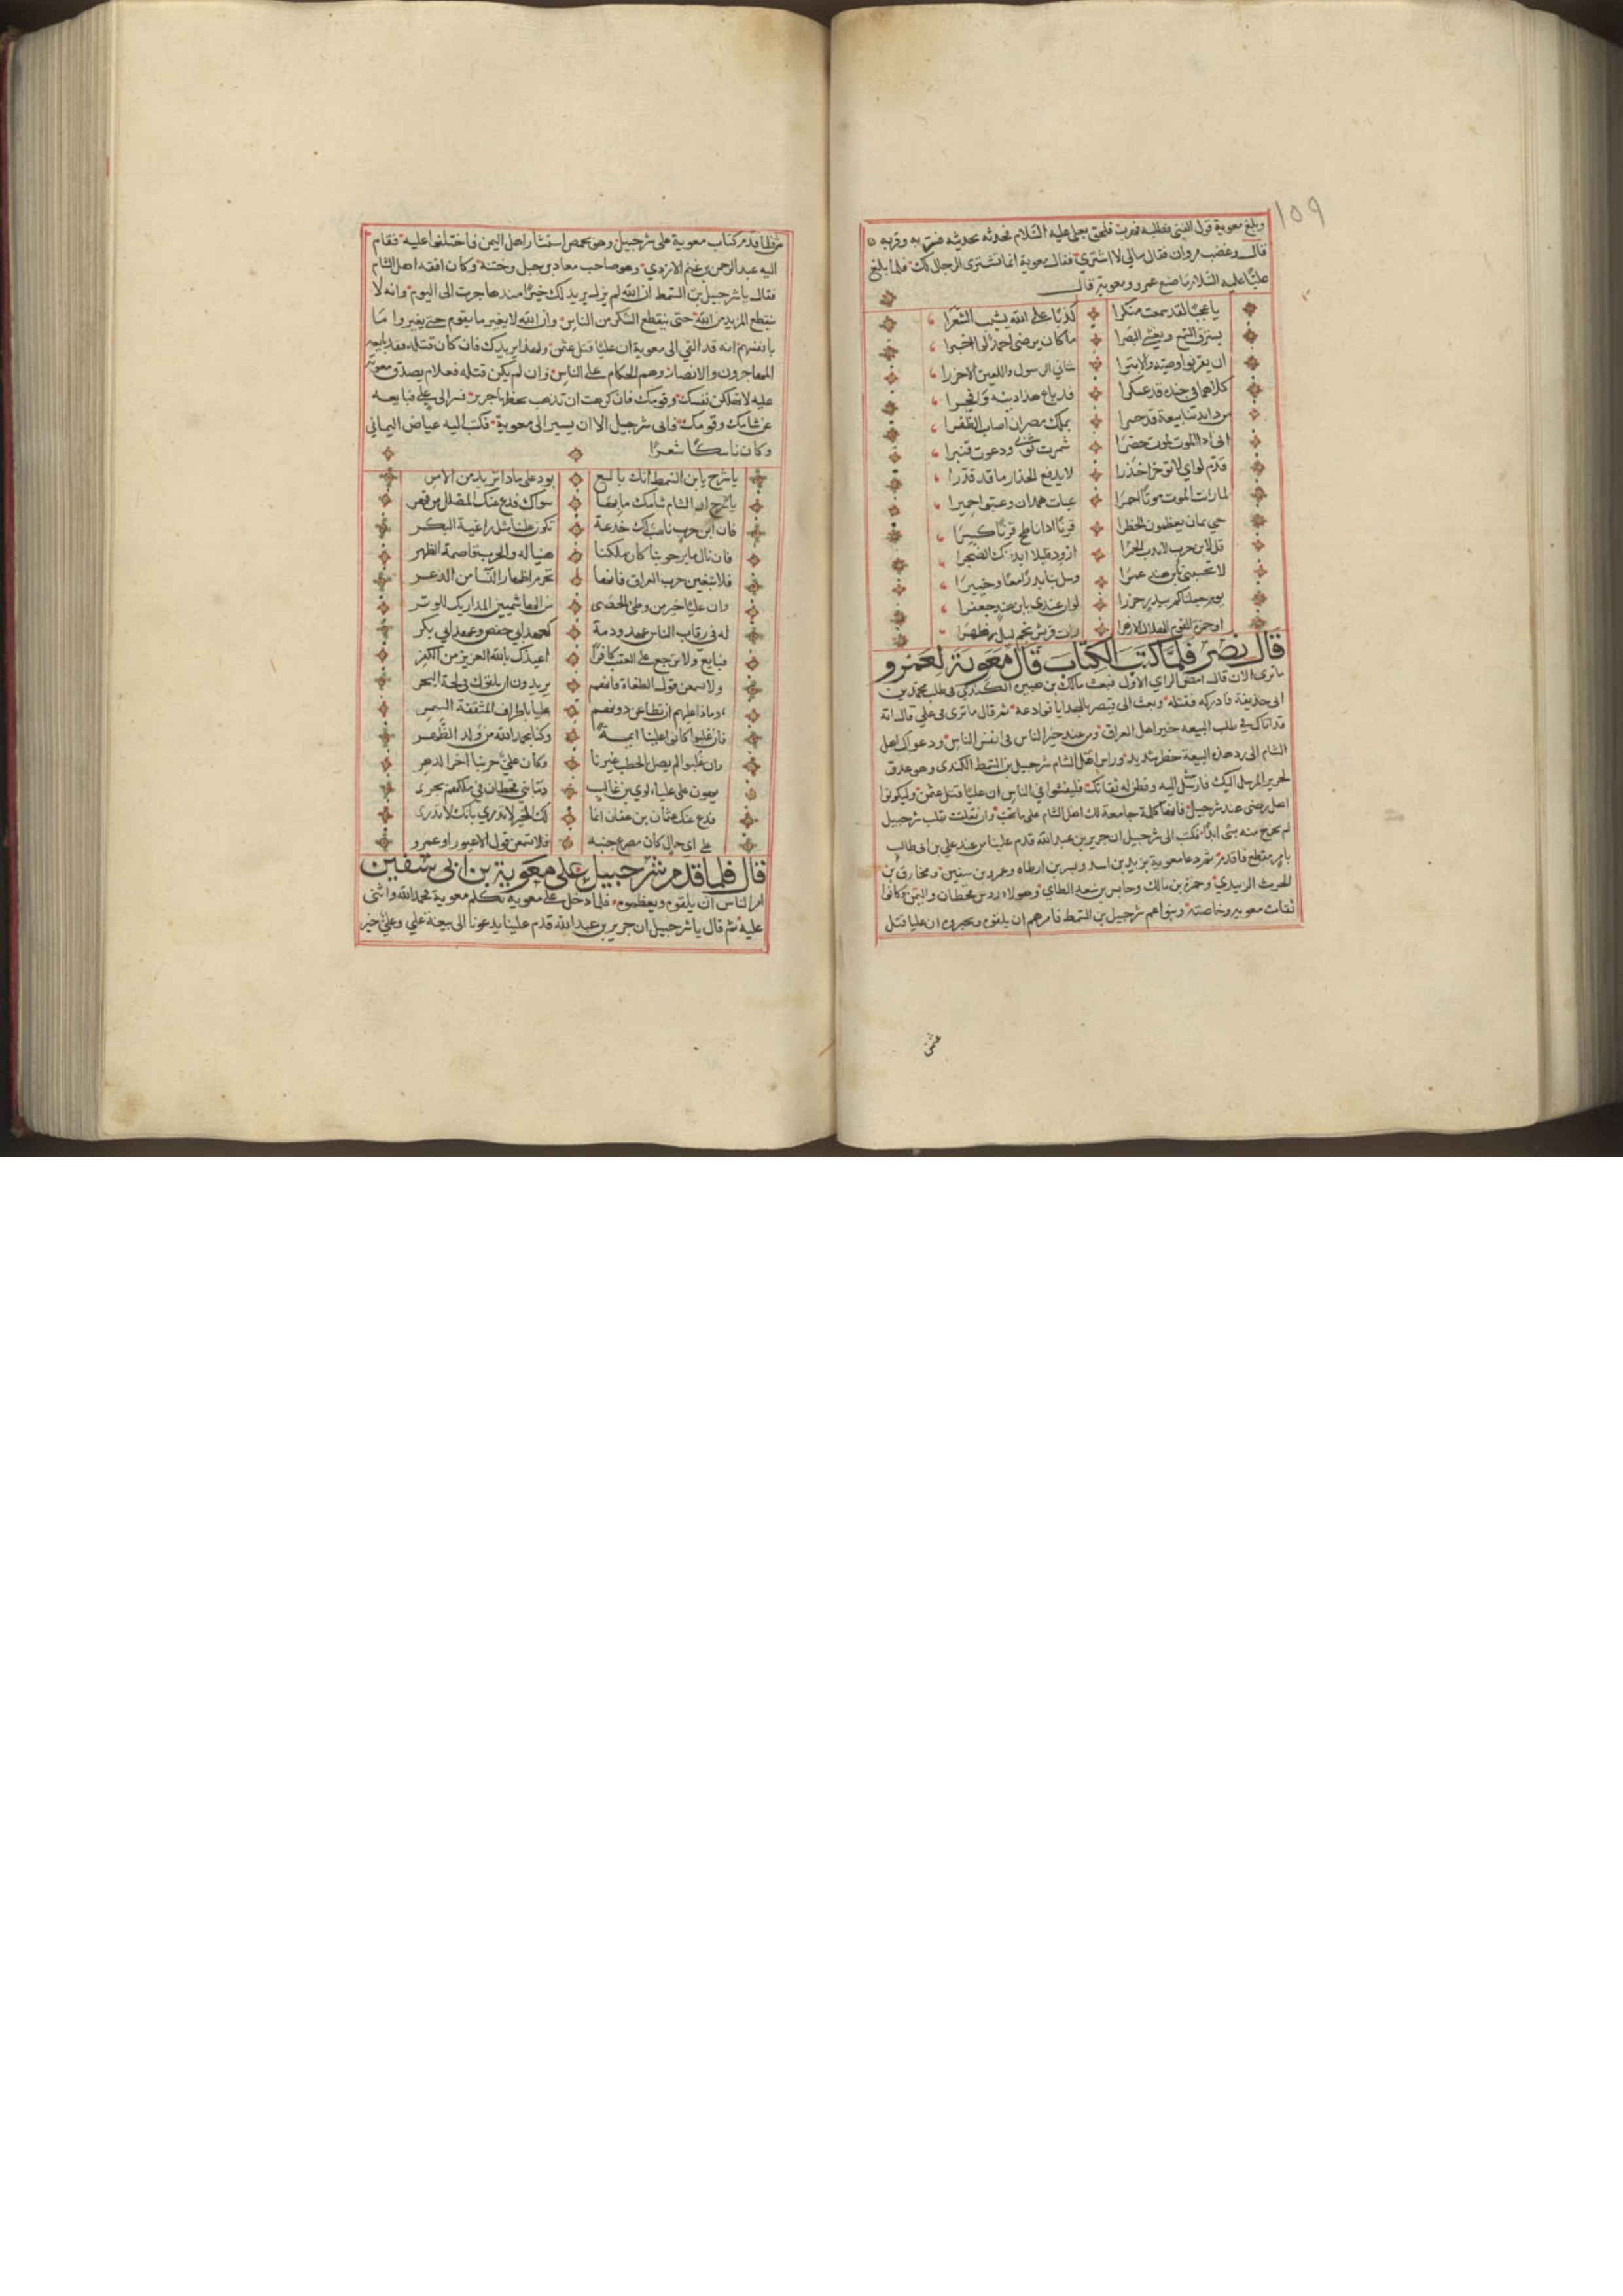 ١٥٩
وبلغ معوية قول الفتى فطلبه فهرب فلحق بعلي عليه السلام فحدثه بحديثه فسر به وقربه
قال وغضب مروان فقال مالي لا اشترى فقال معوية انما نشترى الرجال لك فلما بلغ
عليا عليه السلام ما صنع عمرو ومعوية قال
يا عجبا لقد سمعت منكرا كذبا على الله يشيب الشعرا
يسترق السمع ويغشى البصرا ما كان يرضى احمد لو اخبرا
ان يقرنوا وصيه والابترا شاني الرسول واللعين الاخزرا
كلاهما في جنده قد عسكرا قد باع هذا دينه فافجرا
من ذا بدنيا بيعة قد خسرا بملك مصر ان اصاب الظفرا
اني اذا الموت الموت حضرا شمرت ثوبي ودعوت قنبرا
قدم لواي لا تؤخر حذرا لا يدفع الحذار ما قد قدرا
لما رايت الموت موتا احمرا عبات همدان وعبوا حميرا
حي يمان يعظمون الخطرا قرنا اذا ناطح قرنا كسرا
قل لابن حرب لا تدب الخمرا ارود قليلا ابد منك الضجرا
لا تحسبني يابن هند غمرا وسل بنا بدرا معا وخيبرا
يوم جعلناكم ببدر جزرا لو ان عندي يابن هند جعفرا
او حمزة القوم الهمام الازهرا رات قريش نجم ليل ظهرا
قال نصر فلما كتب الكتاب قال معوية لعمرو
ما ترى الان قال امض الراي الاول فبعث مالك بن هبيرة الكندي في طلب محمد بن
ابي حذيفة فادركه فقتله وبعث الى قيصر بالهدايا فوادعه ثم قال ما ترى في علي قال انه
قد اتاك في طلب البيعه خير اهل العراق ومن عند خير الناس في انفس الناس ودعواك اهل
الشام الى رد هذه البيعة خطر شديد وراس اهل الشام شرحبيل بن السمط الكندى وهو عدو
لجرير المرسل اليك فارسل اليه ووطن له ثقاتك فليفشوا في الناس ان عليا قتل عثمن وليكونوا
اهل رضى عند شرحبيل فانها كلمة جامعة لك اهل الشام على ما تحب وان تعلقت بقلب شرحبيل
لم يخرج منه بشي ابدا فكتب الى شرحبيل ان جرير بن عبد الله قدم علينا من عند علي بن ابي طالب
بامر مفظع فاقدم ثم دعا معوية يزيد بن اسد وبسر بن ارطاه وعمرو بن سفين ومخارق بن
الحرث الزبيدي وحمزة بن مالك وحابس بن سعد الطاي وهولاء روس قحطان واليمن وكانوا
ثقات معوية وخاصته وبنو عم شرحبيل بن السمط فامرهم ان يلقوه ويخبروه ان عليا قتل
عثمن
عثمن فلما قدم كتاب معوية على شرحبيل وهو بحمص استشار اهل اليمن فاختلفوا عليه فقام
اليه عبد الرحمن بن غنم الازدي وهو صاحب معاذ بن جبل وختنه وكان افقه اهل الشام
فقال يا شرحبيل بن السمط ان الله لم يزل يريدك خيرا منذ هاجرت الى اليوم وانه لا
ينقطع المزيد من الله حتى ينقطع الشكر من الناس وان الله لا يغير ما بقوم حتى يغيروا ما
بانفسهم انه قد القي الى معوية ان عليا قتل عثمن ولهذا يريدك فان كان قتله فقد بايعه
المهاجرون والانصار وهم الحكام على الناس وان لم يكن قتله فعلام يصدق معوية
عليه لا تهلكن نفسك وقومك فان كرهت ان تذهب بحظها جرير فسر الى علي فبايعه
عن شامك وقومك فابى شرحبيل الا ان يسير الى معوية فكتب اليه عياض اليماني
وكان ناسكا شعرا
يا شرح يابن السمط انك بالغ بود علي ما تريد من الامر
يا شرح ان الشام شامك ما بها سواك فدع عنك المضلل من فهر
فان ابن حرب ناصب لك خدعة تكون علينا مثل راغية البكر
فان نال ما يرجو بنا كان ملكنا هنيا له والحرب قاصمة الظهر
فلا تبغين حرب العراق فانها تحرم اطهار النسا من الذعر
وان عليا خير من وطئ الحصى من الهاشميين المداريك للوتر
له في رقاب الناس عهد وذمة كعهد ابي حفص وعهد ابي بكر
فبايع ولا ترجع على العقب كافرا اعيذك بالله العزيز من الكفر
ولا تسمعن قول الطغاة فانهم يريدون ان يلقوك في لجة البحر
وماذا عليهم ان تطاعن دونهم عليا باطراف المثقفة السمر
فان غلبوا كانوا علينا ايمة وكنا بحمد الله من ولد الظهر
وان غلبوا لم يصل الحطب غيرنا وكان علي حربنا اخر الدهر
يهون على عليا لوي بن غالب دما بني قحطان في ملكهم تجري
فدع عنك عثمان بن عفان انما لك الخير لا تدري بانك لا تدري
على اي حال كان مصرع جنبه فلا تسمعن قول الاعيور او عمرو
قال فلما قدم شرحبيل على معوية بن ابي سفين
امر الناس ان يلقوه ويعظموه فلما دخل على معوية تكلم معوية فحمد الله واثنى
عليه ثم قال يا شرحبيل ان جرير بن عبد الله قدم علينا يدعونا الى بيعة علي وعلي خير